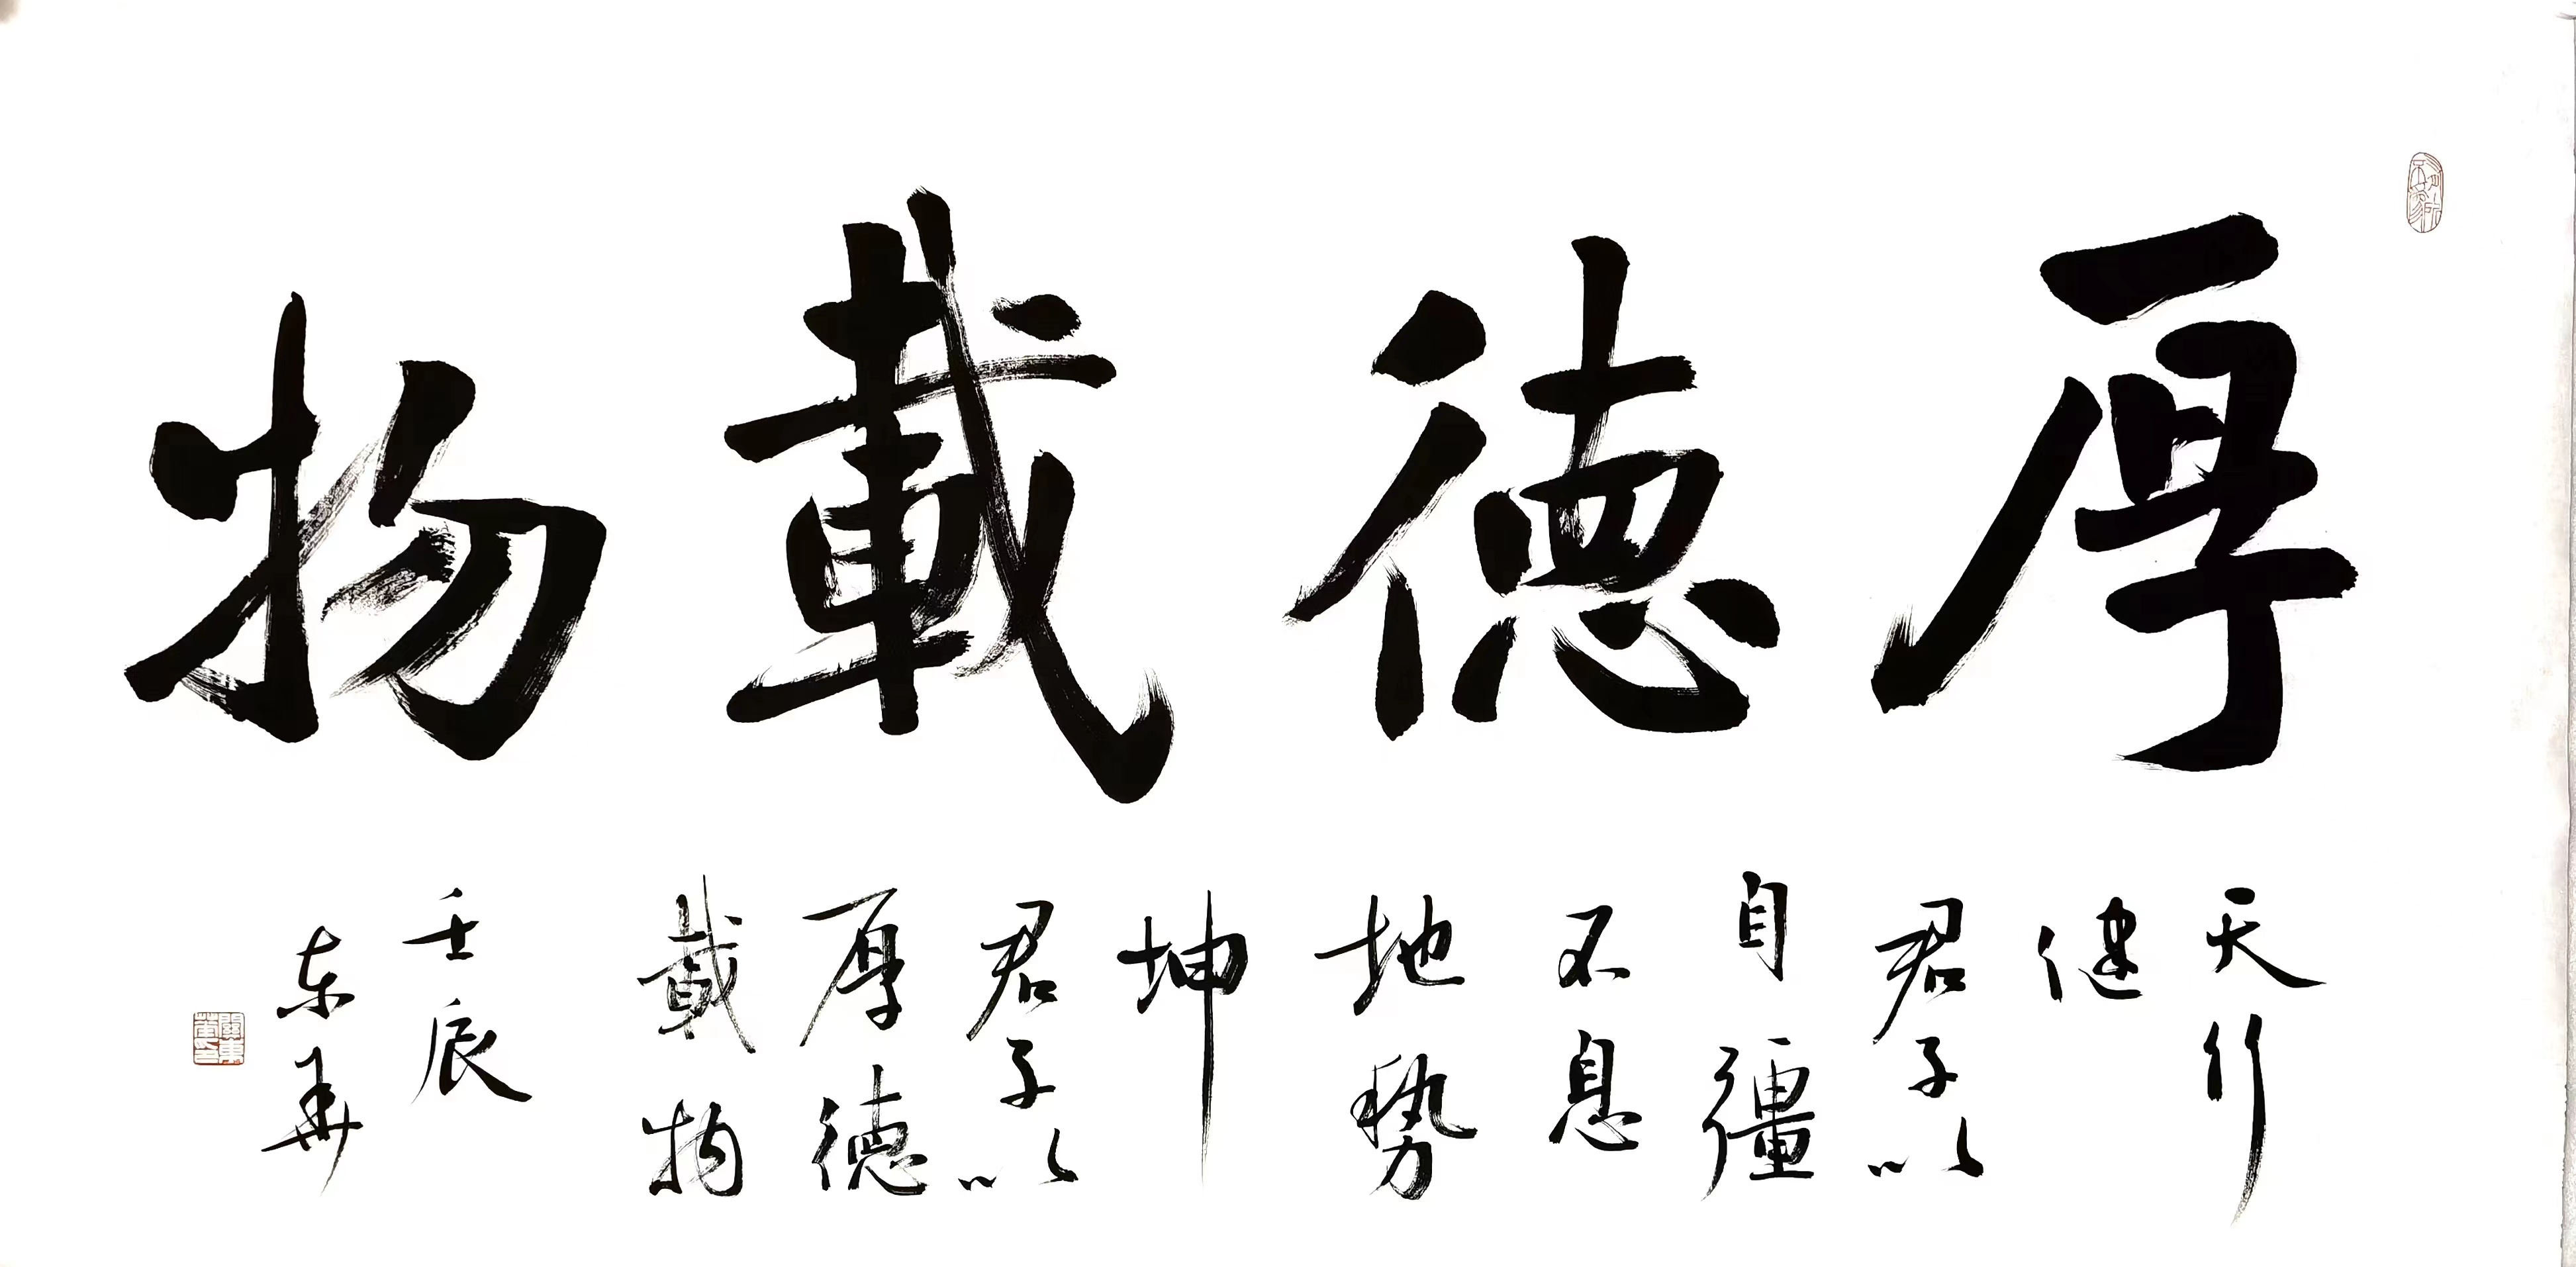 厚德載物
天行
健
君子以
自彊
不息
地勢
坤
君子以
厚德
載物
壬辰
东華